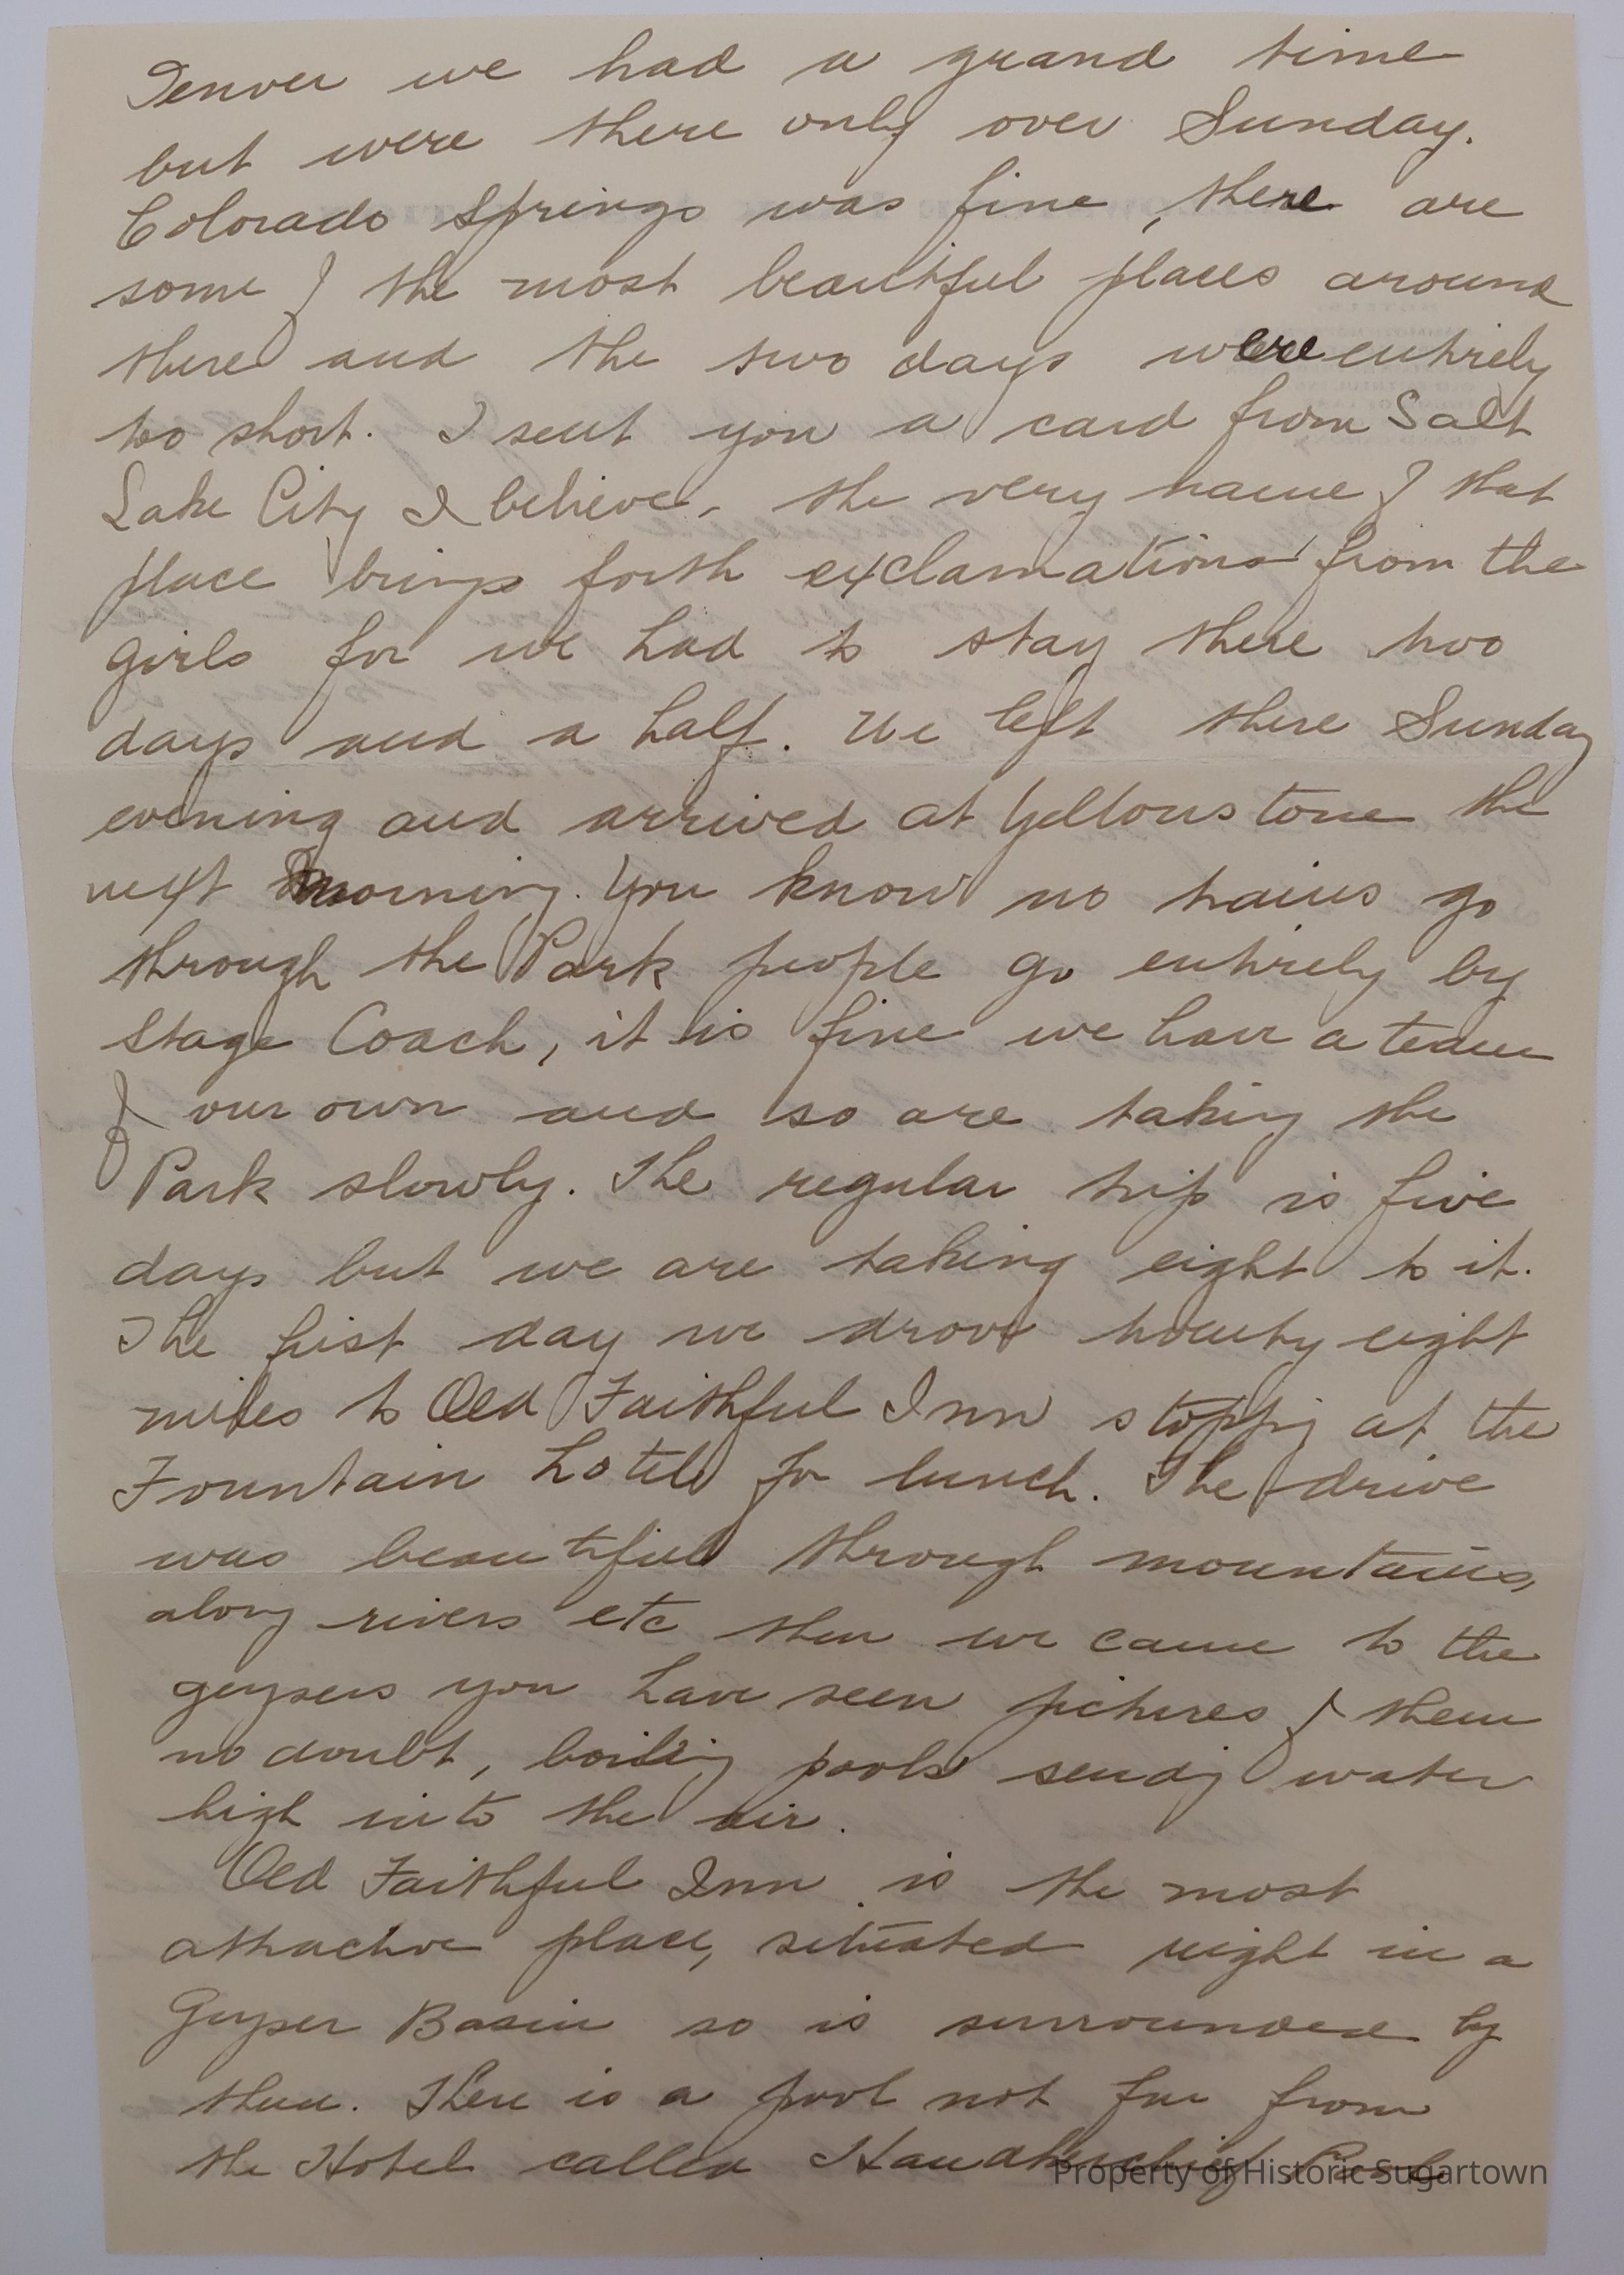 Denver we had a grand time
but were there only over Sunday.
Colorado Springs was fine, there are
some of the most beautiful places around
there and the two days were entirely
too short. I sent you a card from Salt
Lake City I believe, the very name of that
place brings forth exclamations from the
girls for we had to stay there two
days and a half. We left there Sunday
evening and arrived at Yellowstone the
next morning. You know no trains go
through the Park people go entirely by
Stage Coach, it is fine we have a team
of our own and so are taking the
Park slowly. The regular trip is five
days but we are taking eight to it.
The first day we drove twenty eight
miles to Old Faithful Inn stopping at the
Fountain Hotel for lunch. The drive
was beautiful through mountains,
along rivers etc then we came to the
geysers you have seen pictures of them
no doubt, boiling pools sending water
high into the air.
Old Faithful Inn is the most
attractive place, situated right in a
Geyser Basin so is surrounded by
them. There is a pool not far from
the Hotel called Handkerchief Pool
Property of Historic Sugartown